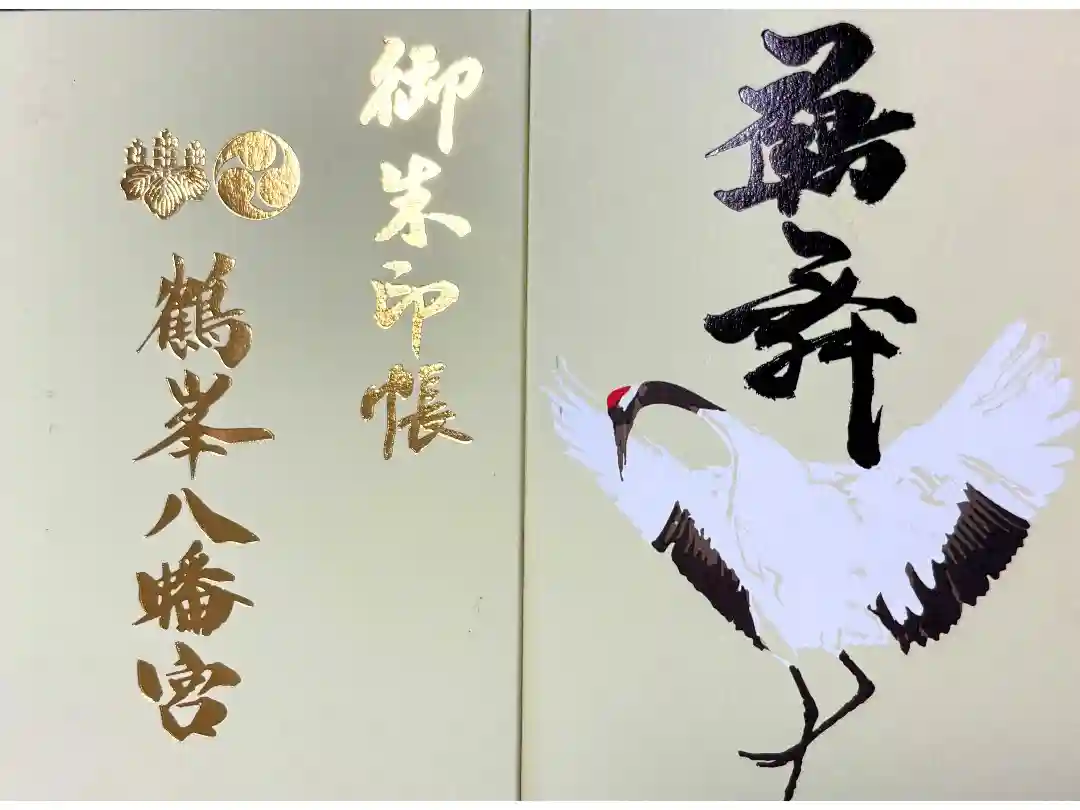 鶴舞
御朱印帳
鶴峯八幡宮